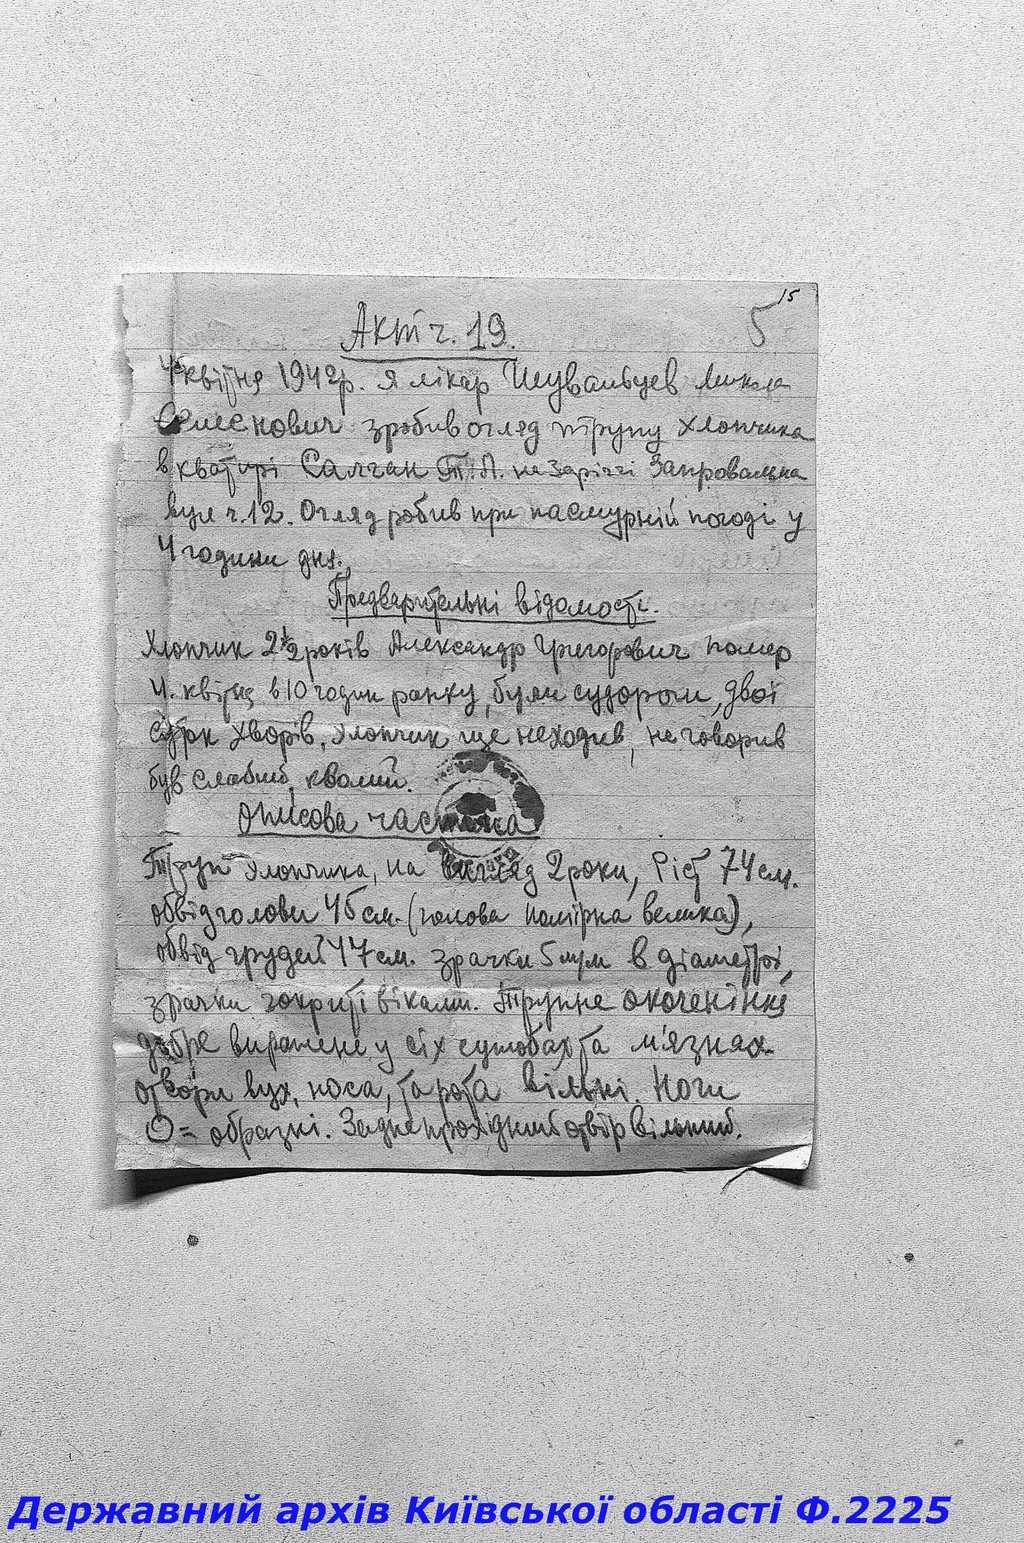 15
5
Акт ч. 19.
4 квітня 1942р. я лікар Шувальцев Микола
Семенович зробив огляд трупу хлопчика
в квартирі Салчан Т.П. на Заріччі Запровальна
вул ч.12. Огляд робив при пасмурній погоді у
4 години дня.
Предварительні відомості.
Хлопчик 2½ років Александр Григорович помер
4. квітня в 10 годин ранку, були судороги, двоі
суток хворів, хлопчик ще неходив, не говорив
був слабий, кволий.
Описова частина
Труп хлопчика, на вигляд 2 роки, ріст 74 см.
обвід голови 45 см. (голова помірна велика),
обвід грудей 47 см. зрачки 5 мм в діаметрі,
зрачки закриті віками. Трупне окоченіння
добре виражене у сіх суглобах та м'язнах
отвори вух, носа, та рота вільні. Ноги
О = образні. Заднепрохідний отвір вільний.
Державний архів Київської області Ф.2225